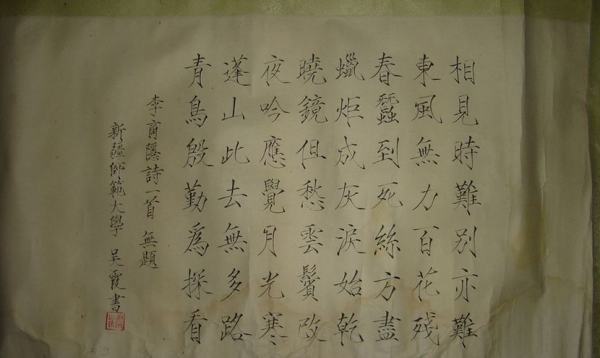 相見時難別亦難
東風無力百花残
春蠶到死絲方盡
蠟炬成灰淚始乾
曉鏡但愁雲鬢改
夜吟應覺月光寒
蓬山此去無多路
青鳥殷勤為探看
李商隱詩一首 無題
新疆師範大學 吴霞書